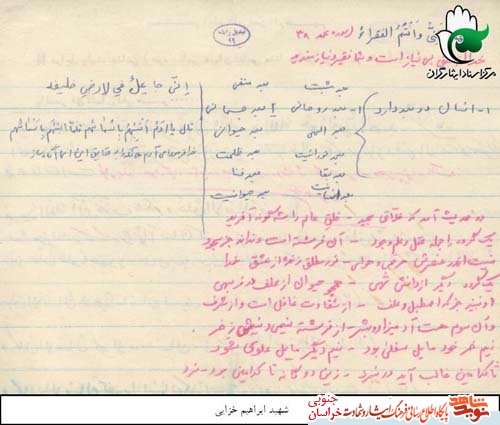 وَأَنْتُمُ الْفُقَرَاءُ (سوره محمد ۳۸
خدا غنی بی نیاز است و شما فقیر و نیازمندید
مرکز اسناد ایثارگران
۱- انسان دو بعد دارد
بعد مثبت بعد منفی
۱- بعد روحانی بعد جسمانی
بعد الهی بعد حیوانی
بعد نورانیت بعد ظلمت
بعد بقا بعد فنا
بعد انسانیت بعد حیوانیت
انی جاعل فی الارض خلیفه
قال یا آدم انبئهم باسمائهم فلما انبئهم باسمائهم
در حدیث آمد که خلاق مجید - خلق عالم را سه گونه آفرید
یک گروه را جمله عقل و علم و جود - آن فرشته است و نداند جز سجود
نیست اندر عنصرش حرص و هوا - نور مطلق زنده از عشق خدا
یک گروه دیگر از دانش تهی - همچو حیوان از علف در فربهی
او نبیند جز که اصطبل و علف - از شقاوت غافل است و از شرف
وآن سوم هست آدمیزاد و بشر - از فرشته نیمی و نیمش ز خر
نیم خر خود مایل سفلی بود - نیم دیگر مایل علوی شود
تا کدامین غالب آید در نبرد - زین دو گانه تا کدامین برد - نرد
شهید ابراهیم خزایی
نوید شاهد
پایگاه اطلاع رسانی فرهنگ ایثار و شهادت خراسان جنوبی